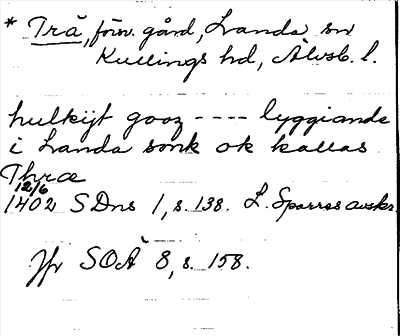 * Trä, förv. gård, Landa sn
Kullings hd, Älvsb. l.
hulkijt gooz ---- lyggiande
i Landa sonk ok kallas
Thræ
12/6
1402 SDns 1, s. 138. L. Sparres avskr.
Jfr SOÄ 8, s. 158.